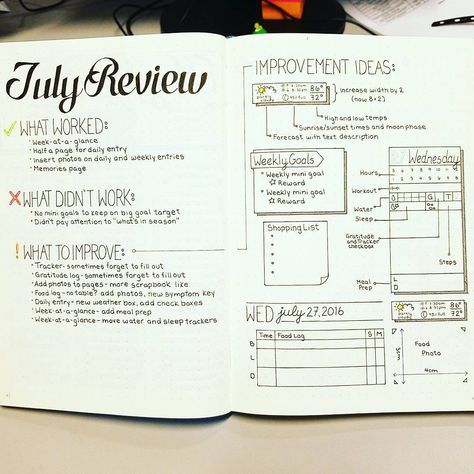 July Review
WHAT WORKED:
Week-at-a-glance
Half a page for daily entry
Insert photos on daily and weekly entries
Memories page
WHAT DIDN'T WORK:
No mini goals to keep on big goal target
Didn't pay attention to "what's in season"
WHAT TO IMPROVE:
Tracker-sometimes forget to fill out
Gratitude log-sometimes forget to fill out
Add photos to pages-more scrapbook like
Food log-no table? add photos, new symptom key
Daily entry-new weather box, add check boxes
Week-at-a-glance-add meal prep
Week-at-a-glance-move water and sleep trackers
IMPROVEMENT IDEAS:
86°
72°
Increase width by 2
(now 8×2)
High and low temps
Sunrise/sunset times and moon phase
Forecast with text description
Weekly Goals
Weekly mini goal
Reward
Weekly mini goal
Reward
Shopping List
Wednesday
Hours
Workout
Water
Sleep
G T
Gratitude
and Tracker
checkbox
Steps
Meal
Prep
L
D
WED july 27, 2016
86°
72°
Time Food Log S M
B
L
D
Food
Photo
3cm
4cm